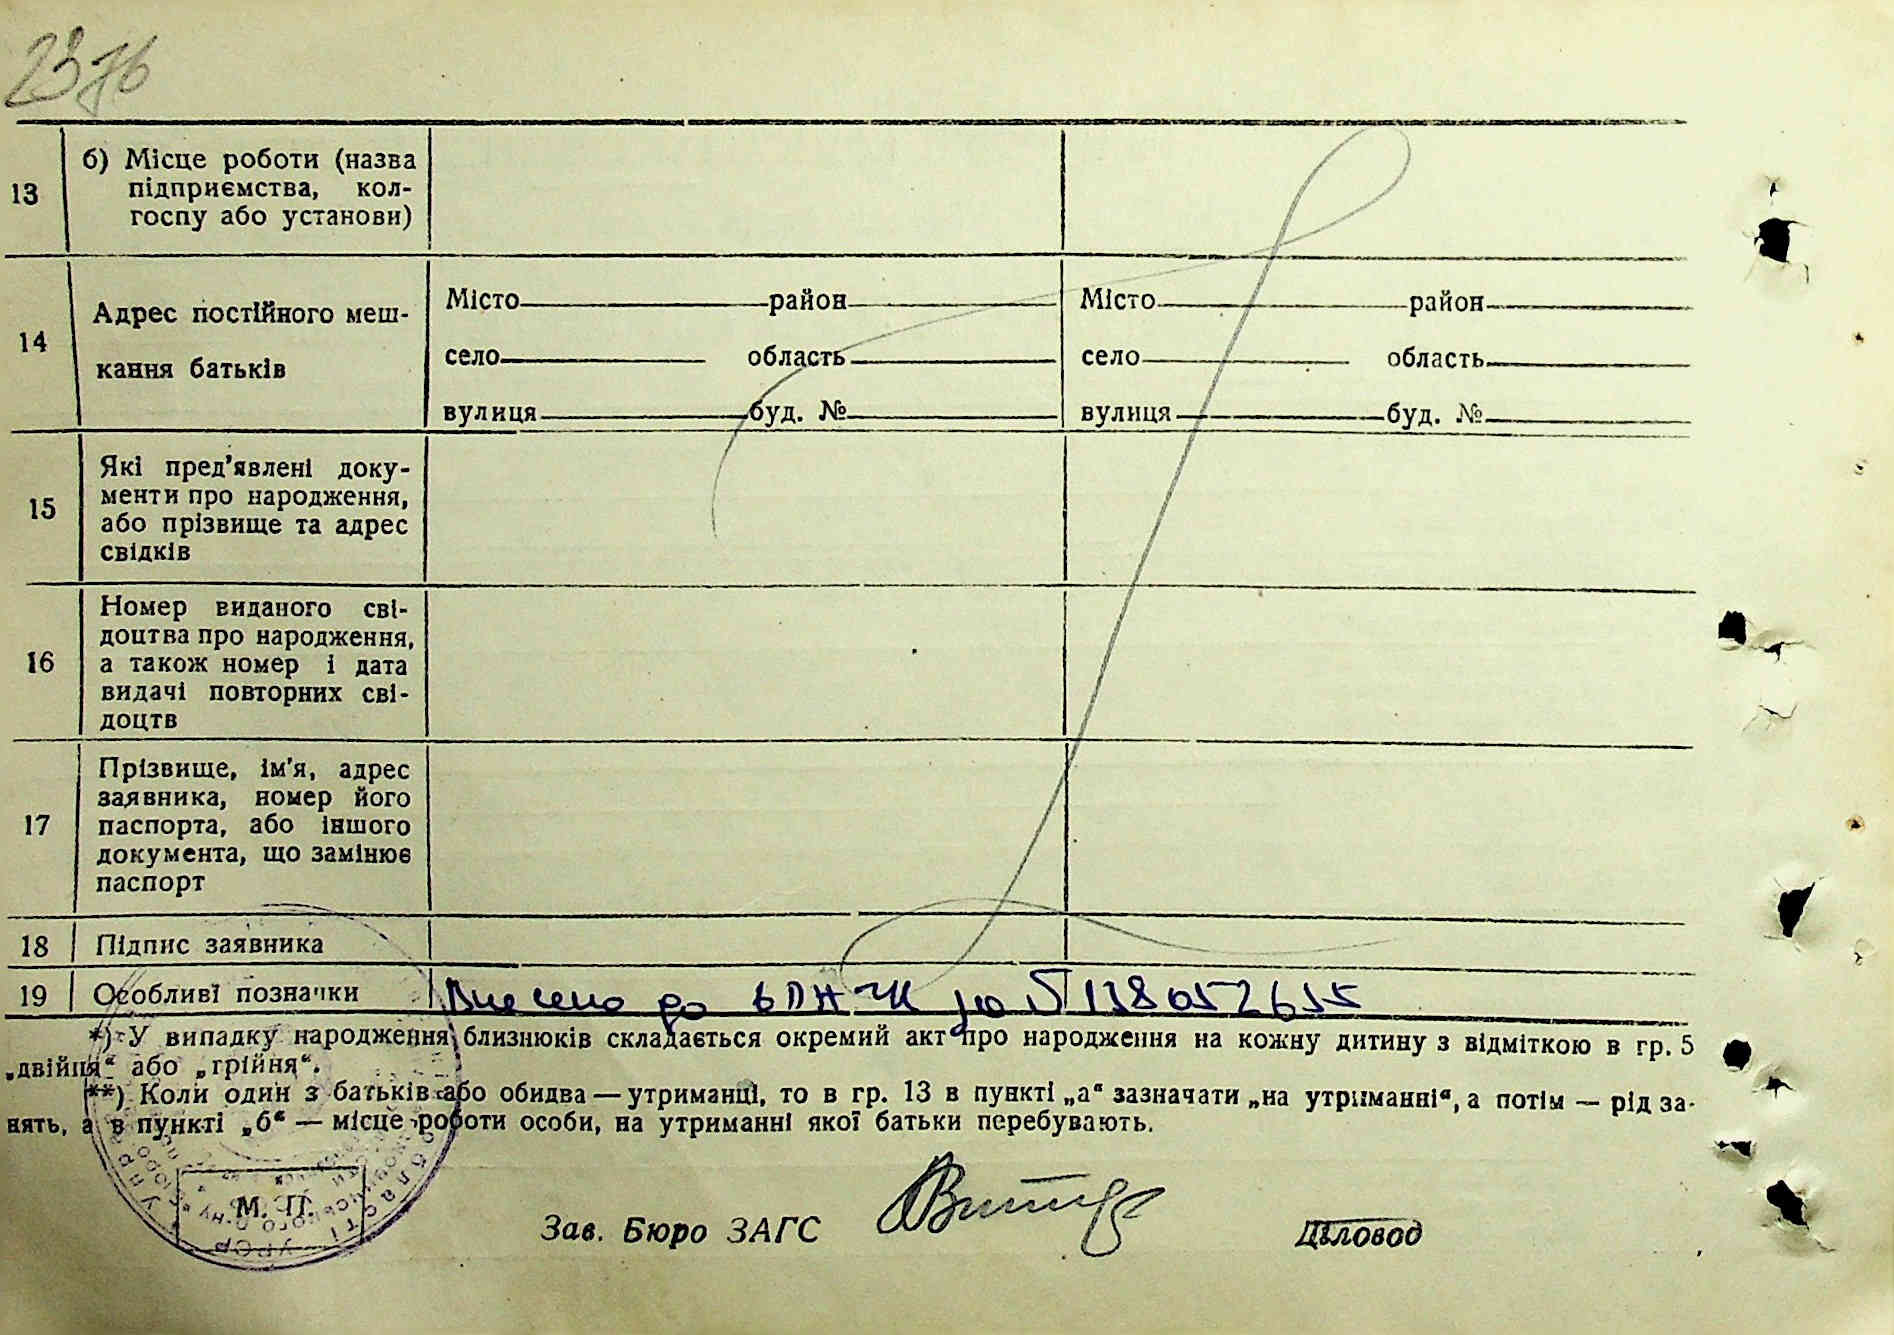 2376
13 б) Місце роботи (назва
підприємства, кол-
госпу або установи)
14 Адрес постійного меш-
кання батьків
Місто район Місто район
село область село область
вулиця буд. № вулиця буд. №
15 Які пред'явлені доку-
менти про народження,
або прізвище та адрес
свідків
16 Номер виданого сві-
доцтва про народження,
а також номер і дата
видачі повторних сві-
доцтв
17 Прізвище, ім'я, адрес
заявника, номер його
паспорта, або іншого
документа, що замінює
паспорт
18 Підпис заявника
19 Особливі позначки Внесено до
*) У випадку народження близнюків складається окремий акт про народження на кожну дитину з відміткою в гр. 5
„двійня“ або „трійня“.
**) Коли один з батьків або обидва — утриманці, то в гр. 13 в пункті „а“ зазначати „на утриманні“, а потім — рід за-
нять, а в пункті „б“ — місце роботи особи, на утриманні якої батьки перебувають.
М. П.
Зав. Бюро ЗАГС Діловод